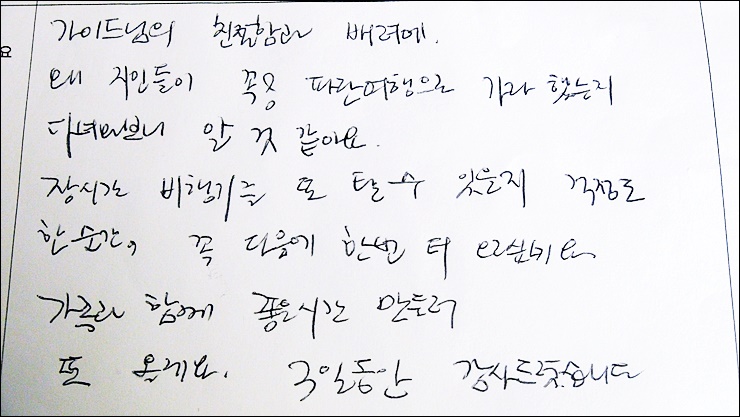 요
가이드님의 친절함과 배려에.
왜 지인들이 꼭 파란여행으로 가라 했는지
다녀와보니 알 것 같아요.
장시간 비행기를 또 탈 수 있을지 걱정도
한순간, 꼭 다음에 한번 더 오고싶네요
가족과 함께 좋은시간 만들러
또 올게요. 9일동안 감사드렸습니다